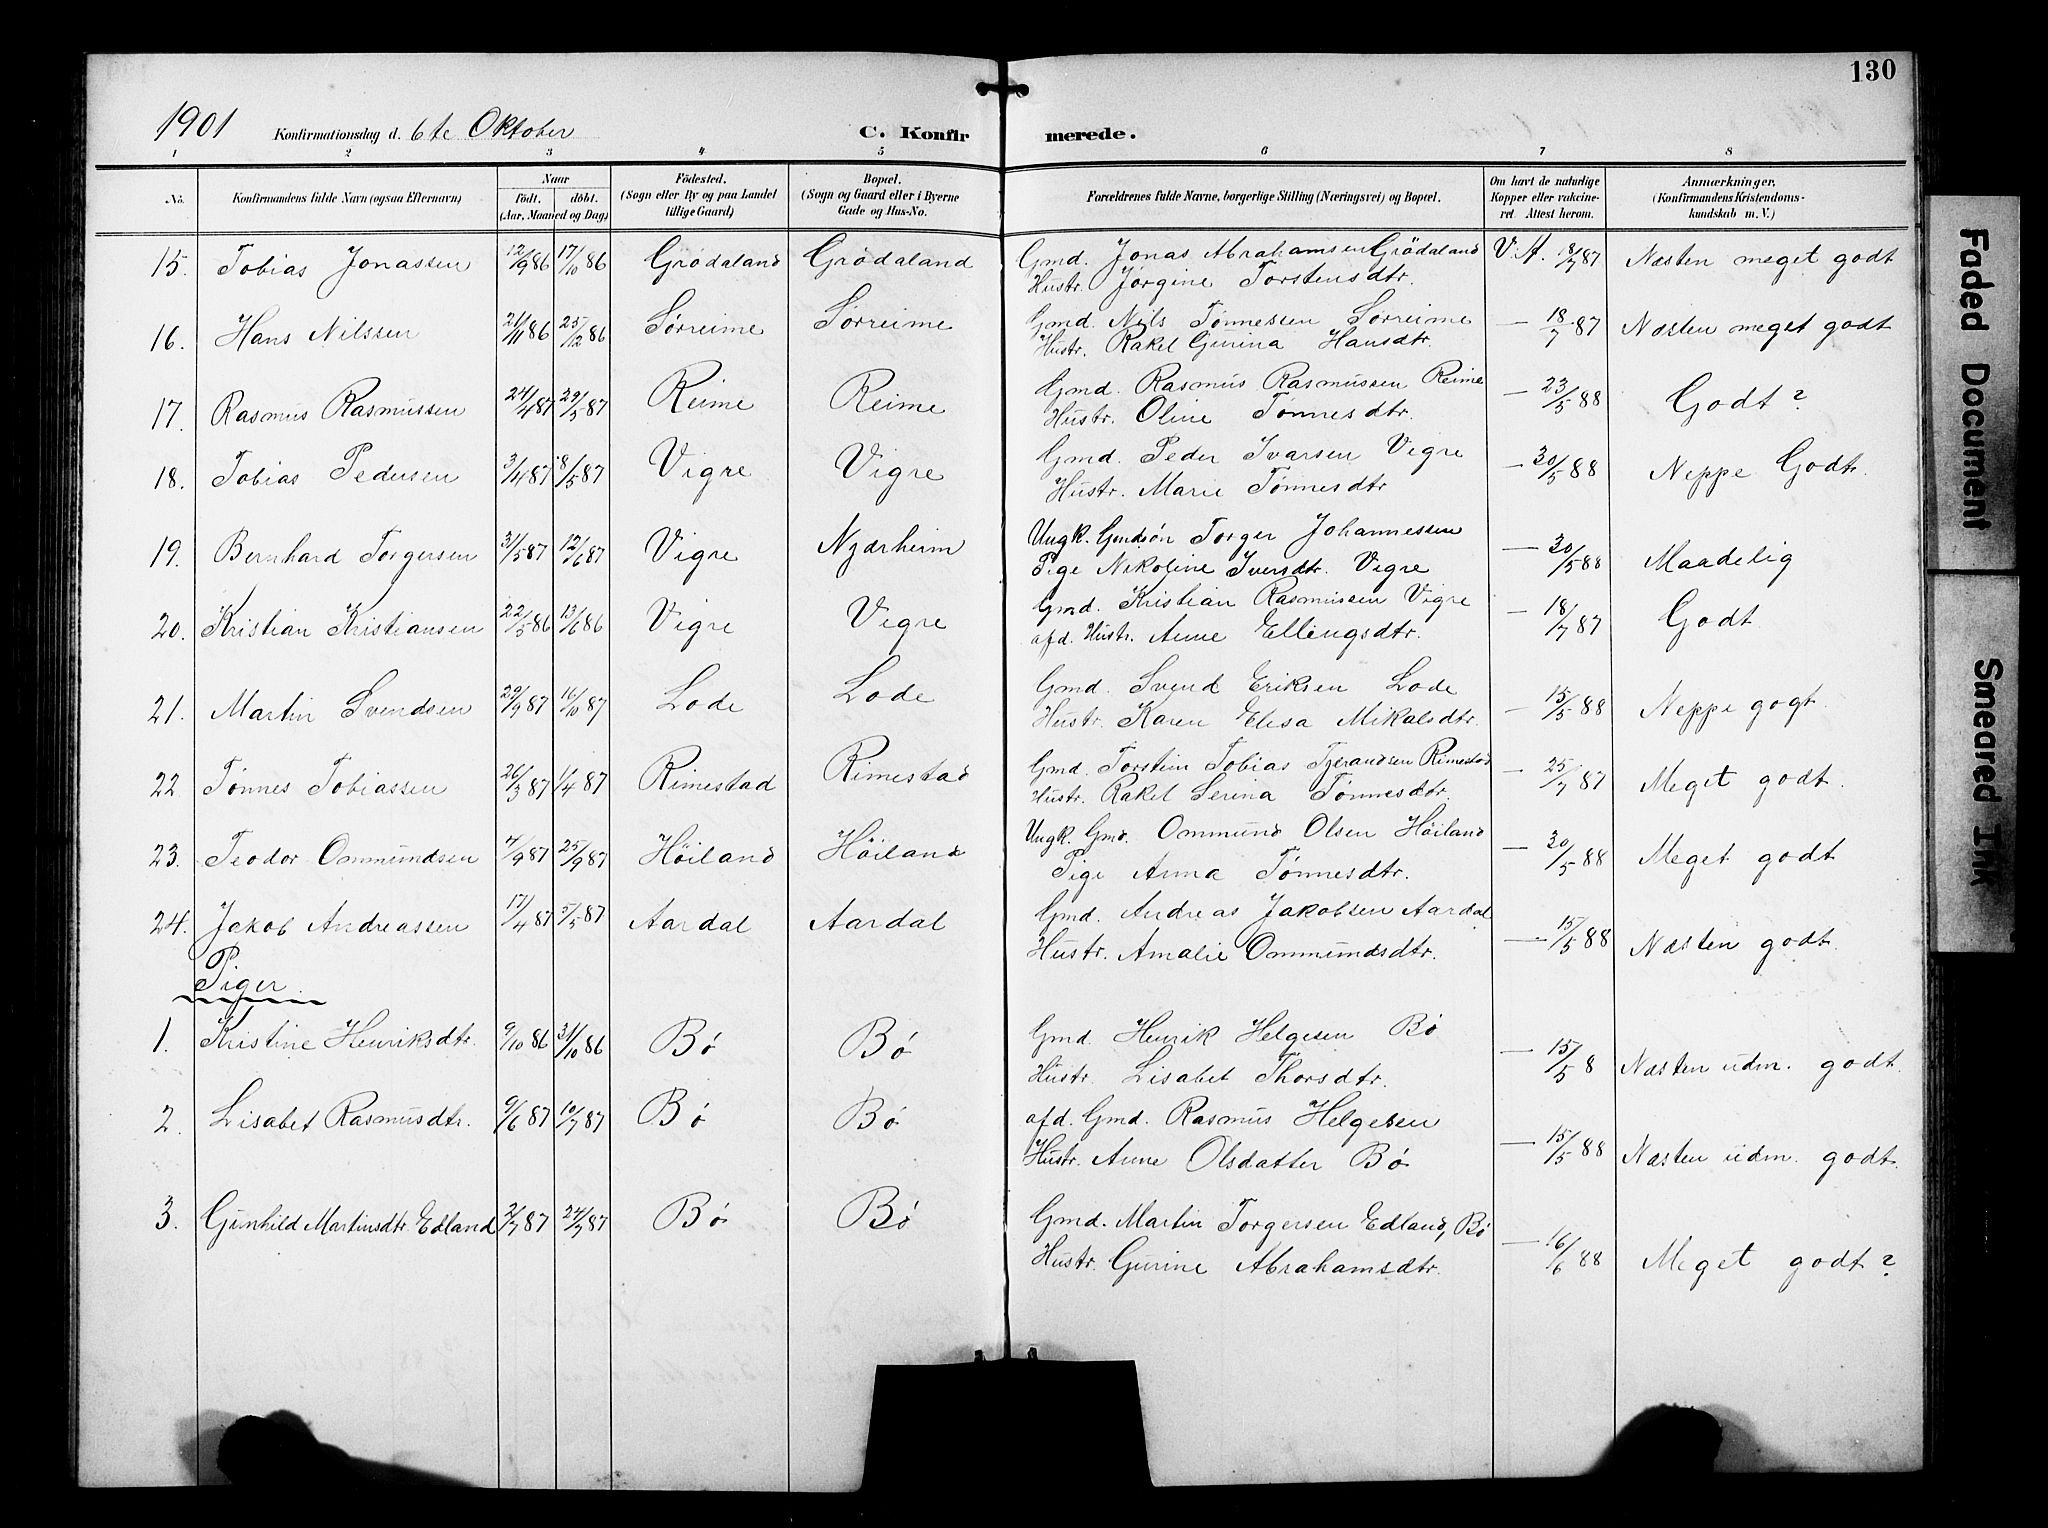 130
1901 Konfirmationsdag d. 6te Oktober C. Konfirmerede.
1 2 3 4 5 6 7 8
No. Konfirmandens fulde Navn (ogsaa Efternavn) Naar født. døbt. (Aar, Maaned og Dag) Fødested. (Sogn eller By og paa Landet tillige Gaard) Bopæl. (Sogn og Gaard eller i Byerne Gade og Hus-No. Forældrenes fulde Navne, borgerlige Stilling (Næringsvei) og Bopæl. Om havt de naturlige Kopper eller vakcineret Attest herom. Anmærkninger. (Konfirmandens Kristendomskundskab m. V.)
15. Tobias Jonassen 12/9 86 17/10 86 Grødaland Grødaland Gmd. Jonas Abrahamsen Grödaland V. A. 18/7 87 Næsten meget godt
Hustr. Jørgine Torstensdtr.
16. Hans Nilssen 21/11 86 25/12 86 Sørreime Sørreime Gmd. Nils Tønnessen Sørreime — 18/7 87 Næsten meget godt
Hustr. Rakel Gurina Hansdtr.
17. Rasmus Rasmussen 24/4 87 29/5 87 Reime Reime Gmd. Rasmus Rasmussen Reime — 23/5 88 Godt?
Hustr. Oline Tønnesdtr.
18. Tobias Pedersen 3/4 87 18/5 87 Vigre Vigre Gmd. Peder Ivarsen Vigre — 30/5 88 Neppe Godt.
Hustr. Marie Tønnesdtr
19. Bernhard Torgersen 31/5 87 12/6 87 Vigre Njærheim Ungk. Gmdsøn Torger Johannessen — 30/5 88 Maadelig
Pige Nikoline Iversdtr. Vigre
20. Kristian Kristiansen 22/5 86 13/6 86 Vigre Vigre Gmd. Kristian Rasmussen Vigre — 18/7 87 Godt
afd. Hustr. Anne Ellingsdtr.
21. Martin Svendsen 29/9 87 16/10 87 Lode Lode Gmd. Svend Eriksen Lode — 15/5 88 Neppe gogt.
Hustr. Karen Elesa Mikalsdtr.
22. Tønnes Tobiassen 26/3 87 11/4 87 Rimestad Rimestad Gmd. Torstein Tobias Tjerandsen Rimestad — 25/7 87 Meget godt.
Hustr. Rakel Serena Tønnesdtr.
23. Teodor Ommundsen 7/9 87 25/9 87 Höiland Höiland Ungk. Gmd. Ommund Olsen Höiland — 30/5 88 Meget godt
Pige Anna Tønnesdtr.
24. Jakob Andreassen 17/4 87 5/5 87 Aardal Aardal Gmd. Andreas Jakobsen Aardal — 15/5 88 Næsten godt.
Hustr. Amalie Ommundsdtr.
Piger.
1. Kristine Henriksdtr. 9/10 86 31/10 86 Bø Bø Gmd. Henrik Helgesen Bø — 15/5 8 Næsten udm. godt.
Hustr. Lisabet Thorsdtr.
2. Lisabet Rasmusdtr. 9/6 87 10/7 87 Bø Bø afd. Gmd. Rasmus Helgesen — 15/5 88 Næsten udm. godt.
Hustr. Anne Olsdatter Bø
3. Gunhild Martinsdtr. Edland 2/7 87 24/7 87 Bø Bø Gmd. Martin Torgersen Edland, Bø — 16/6 88 Meget godt?
Hustr. Gurine Abrahamsdtr.
Faded Document
Smeared Ink